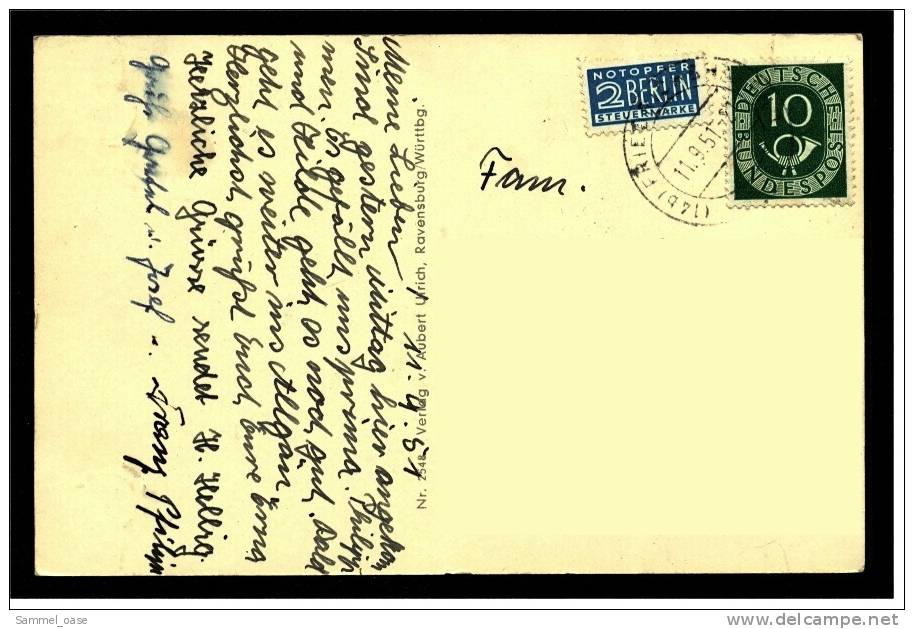 Meine Lieben! 11.9.51
Sind gestern Mittag hier angekom
men. Es gefällt uns prima. Philipp
und Hilde geht es noch gut. Bald
geht es weiter ins Allgäu,
Herzlichst grüßt Euch Eure Erna
Herzliche Grüsse sendet H. Hellwig.
Grüße u. Josef u. Franz Philipp
Nr. 2548 Verlag v. Aubert Ulrich, Ravensburg/Württbg.
NOTOPFER
2 BERLIN
STEUERMARKE
(14b) FRIED
11.9.51
DEUTSCHE
10
BUNDESPOST
Fam.
Sammel_oase
delcampe.net